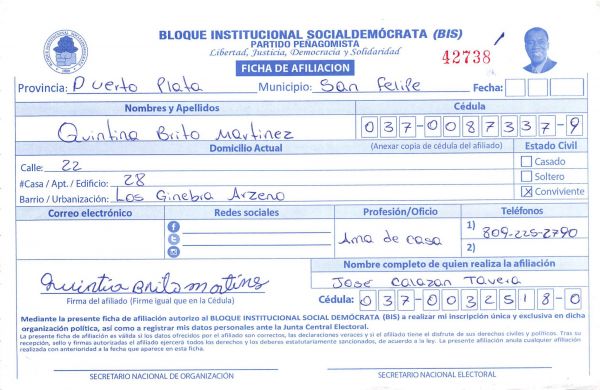 BLOQUE INSTITUCIONAL SOCIALDEMÓCRATA (BIS)
PARTIDO PEÑAGOMISTA
Libertad, Justicia, Democracia y Solidaridad
42738
FICHA DE AFILIACION
Provincia: Puerto Plata Municipio: San Felipe Fecha:
Nombres y Apellidos Cédula
Quintina Brito Martinez 037-0087337-9
Domicilio Actual (Anexar copia de cédula del afiliado) Estado Civil
Calle: 22 Casado
#Casa / Apt. / Edificio: 28 Soltero
Barrio / Urbanización: Los Ginebra Arzeno X Conviviente
Correo electrónico Redes sociales Profesión/Oficio Teléfonos
Ama de casa 1) 809-225-2790
2)
Nombre completo de quien realiza la afiliación
Quintia Brito Martins Jose Calazan Tavera
Firma del afiliado (Firme igual que en la Cédula) Cédula: 037-0032518-0
Mediante la presente ficha de afiliación autorizo al BLOQUE INSTITUCIONAL SOCIAL DEMÓCRATA (BIS) a realizar mi inscripción única y exclusiva en dicha
organización política, así como a registrar mis datos personales ante la Junta Central Electoral.
La presente ficha de afiliación es válida si los datos ofrecidos por el afiliado son correctos, las declaraciones veraces y si el afiliado tiene el disfrute de sus derechos civiles y políticos. Tras su
recepción, sello y firmas autorizadas el afiliado ejercerá todos los derechos y los deberes estatutariamente sancionados, de acuerdo a la ley. La presente afiliación anula cualquier afiliación
realizada con anterioridad a la fecha que aparece en esta ficha.
SECRETARIO NACIONAL DE ORGANIZACIÓN SECRETARIO NACIONAL ELECTORAL